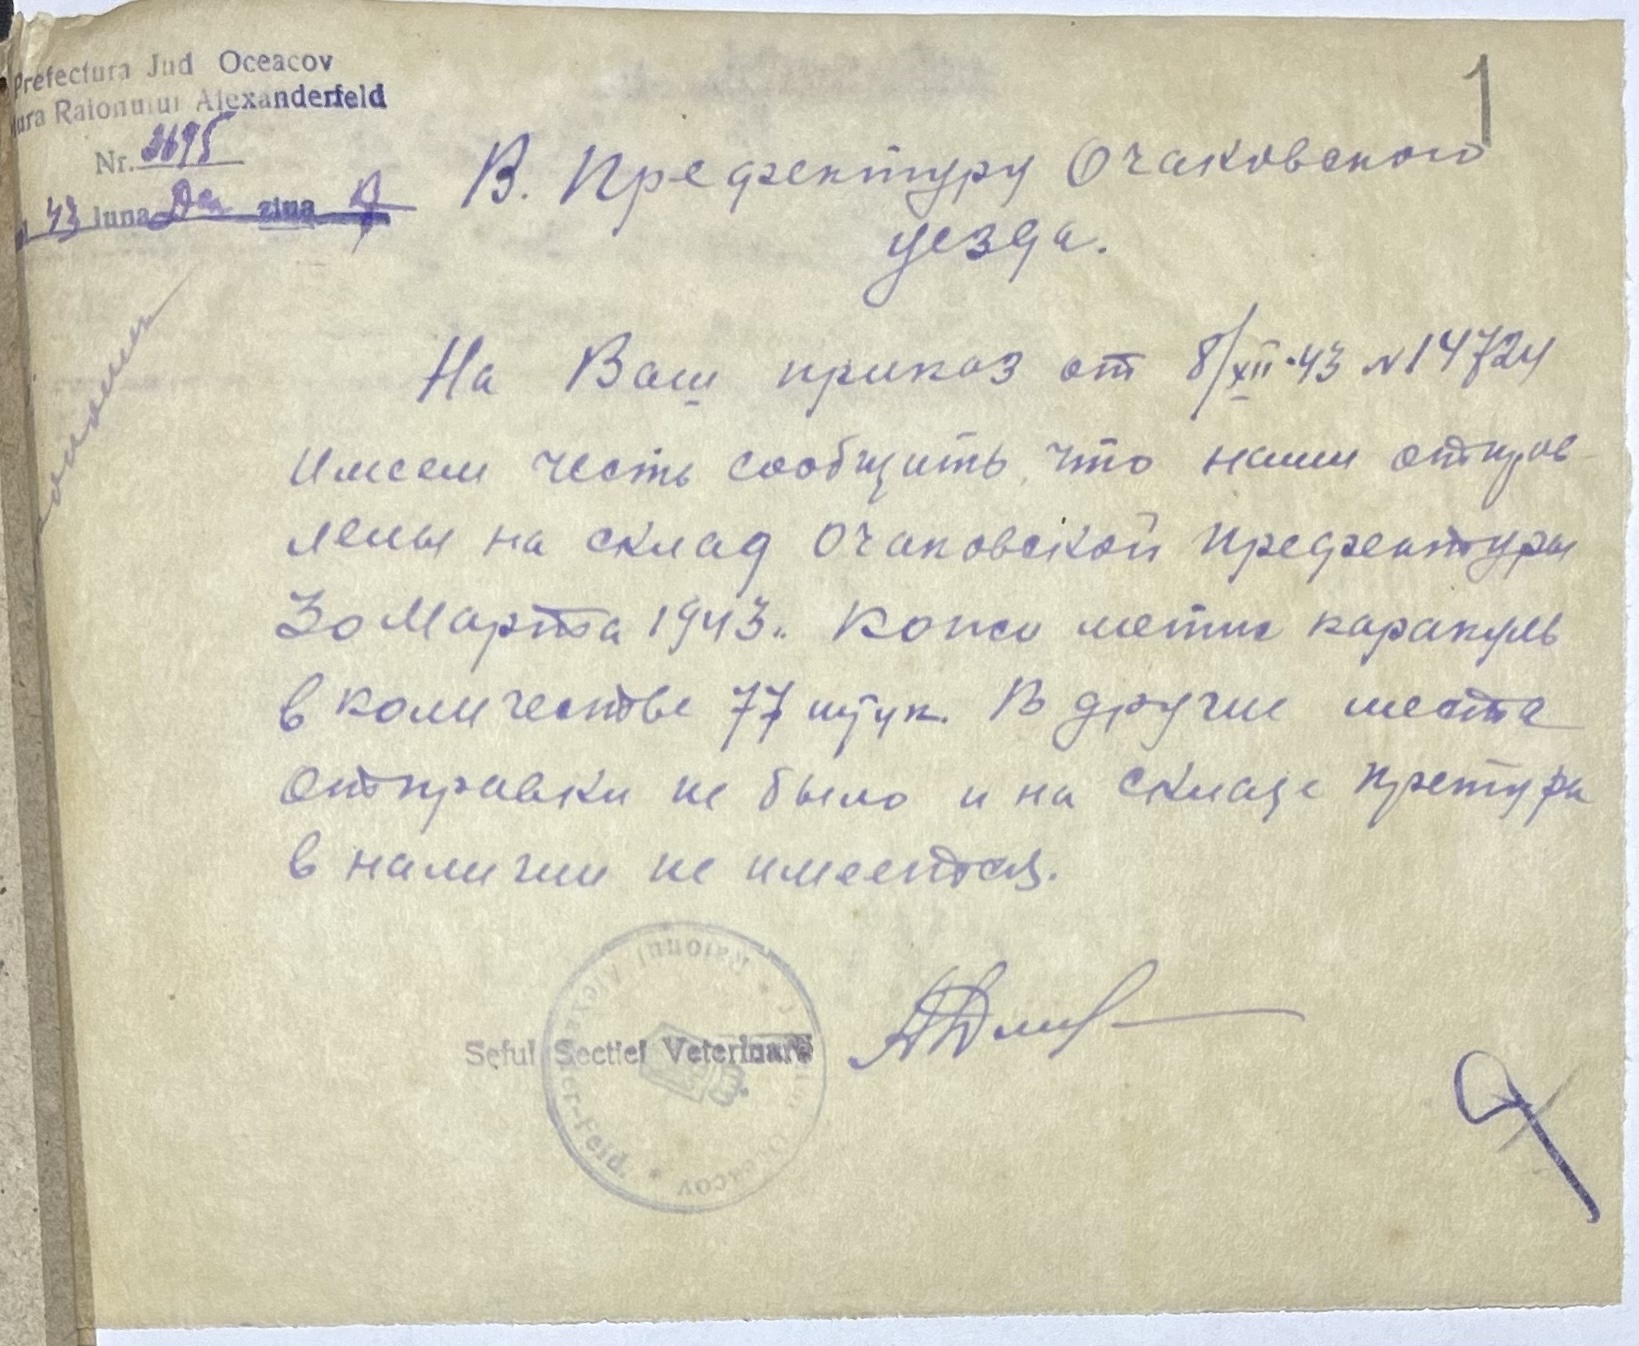 Prefectura Jud Oceacov
ura Raionului Alexanderfeld
Nr. 2695
43 luna Dec ziua
1
В. Префектуру Очаковского
уезда.
На Ваш приказ от 8/XII-43 N 14724
Имеем честь сообщить, что нами отправ-
лены на склад Очаковской префектуры
30 Марта 1943.. Кожи метис каракуль
в количестве 77 штук. В другие места
отправки не было и на складе претуры
в наличии не имеется.
Seful Sectiei Veterinare
Raionul Alexander-Feld. * Oceacov